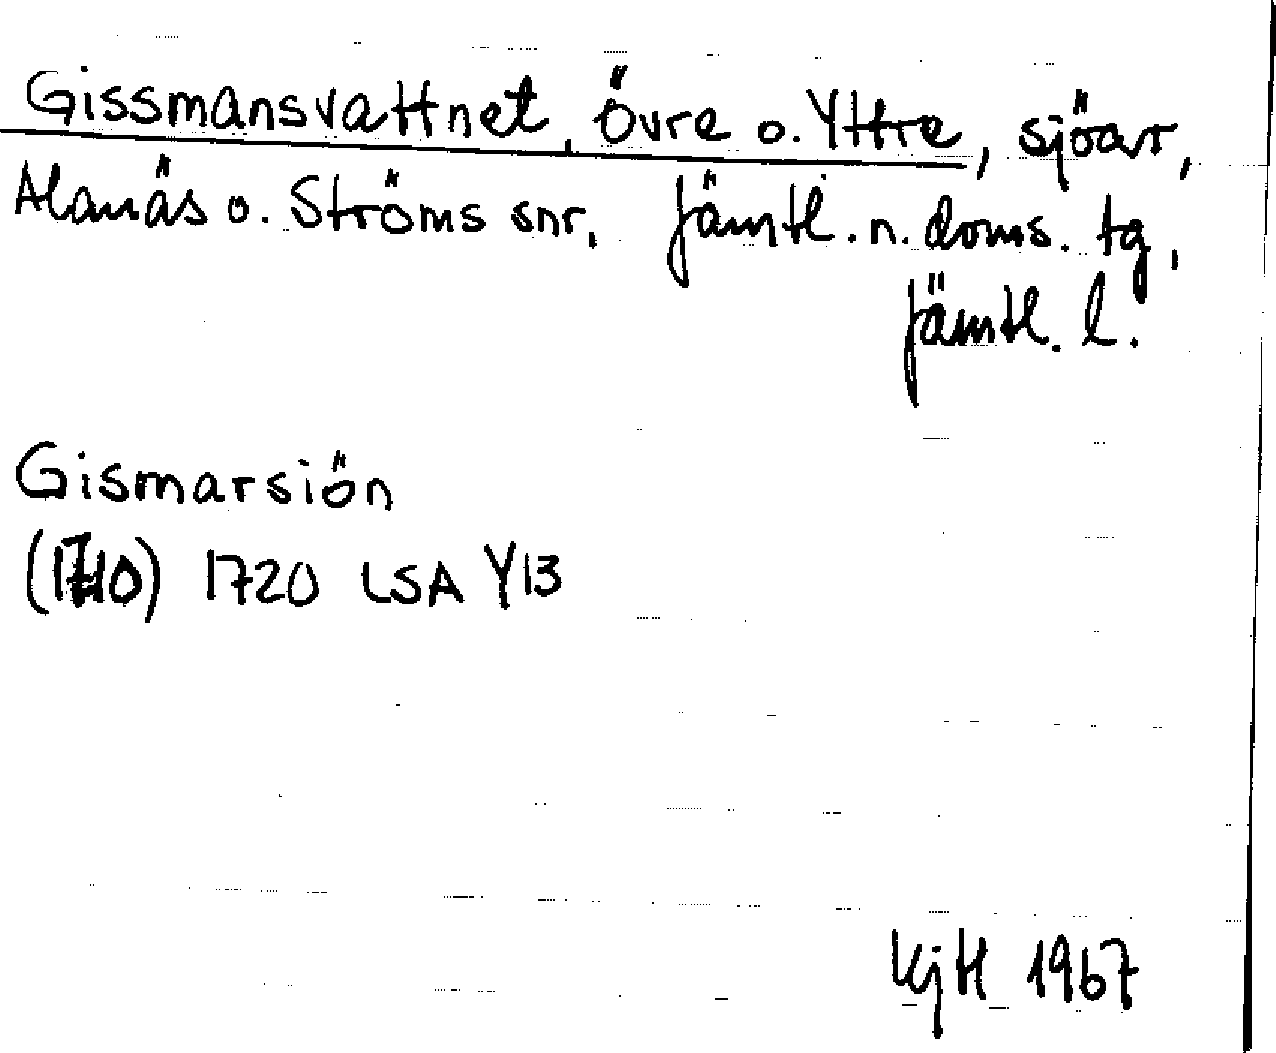 Gissmansvattnet, Övre o. Yttre, sjöar,
Alanäs o. Ströms snr, Jämtl. n. doms. tg,
Jämtl. l.
Gismarsiön
(1710) 1720 LSA Y13
KjH 1967